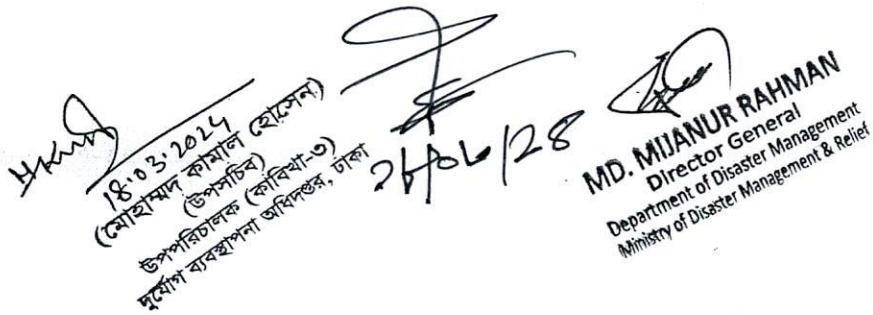 18.03.2024
(মোহাম্মদ কামাল হোসেন)
(উপসচিব)
উপপরিচালক (কাবিখা-৩)
দুর্যোগ ব্যবস্থাপনা অধিদপ্তর, ঢাকা
MD. MIJANUR RAHMAN
Director General
Department of Disaster Management
Ministry of Disaster Management & Relief